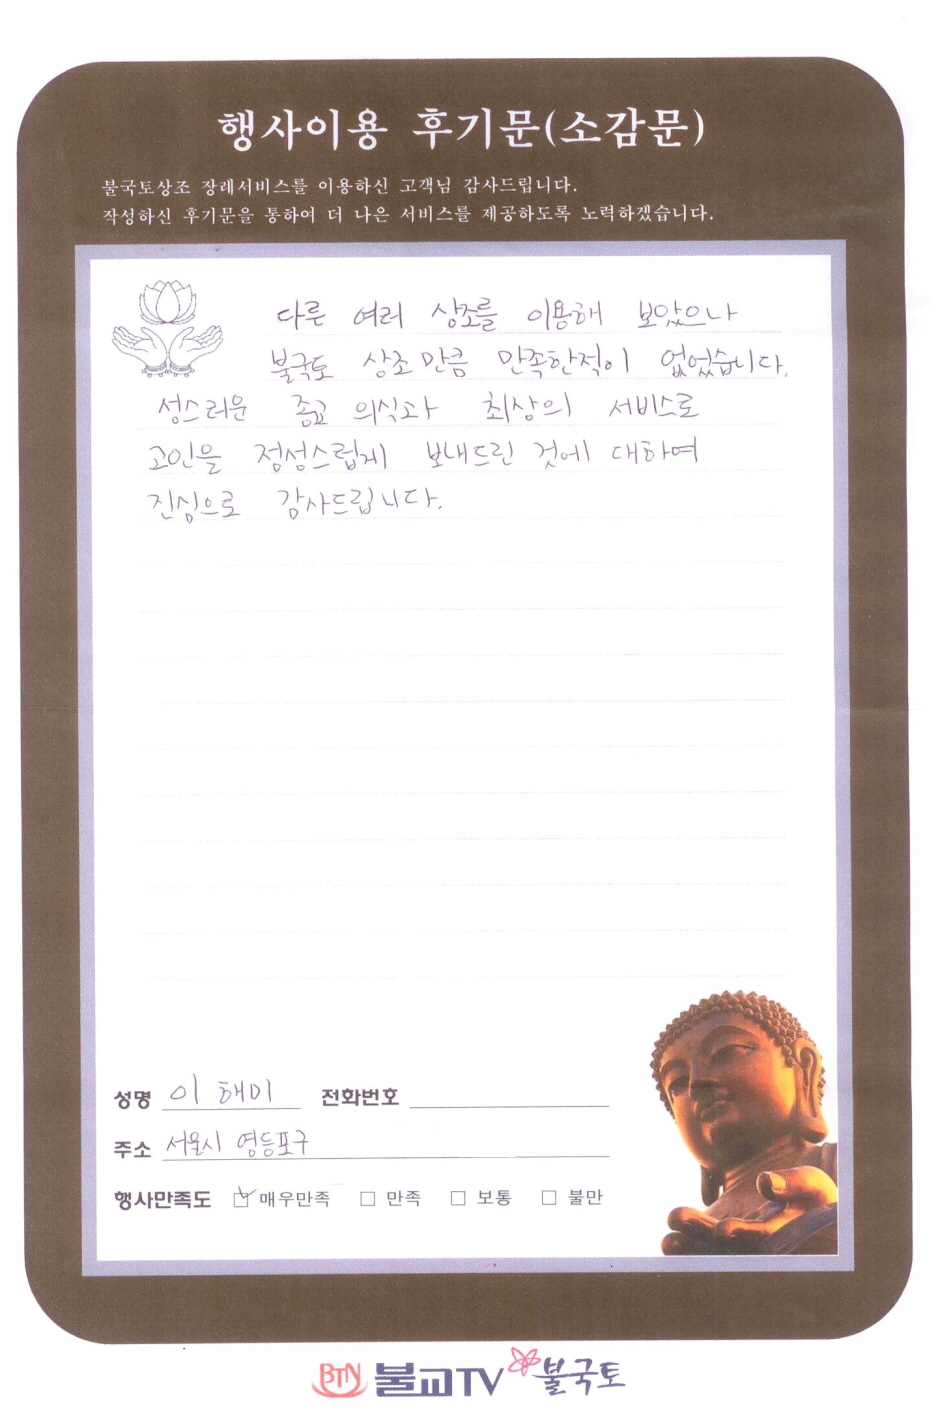 행사이용 후기문(소감문)
불국토상조 장례서비스를 이용하신 고객님 감사드립니다.
작성하신 후기문을 통하여 더 나은 서비스를 제공하도록 노력하겠습니다.
다른 여러 상조를 이용해 보았으나
불국토 상조만큼 만족한적이 없었습니다.
성스러운 종교 의식과 최상의 서비스로
고인을 정성스럽게 보내드린 것에 대하여
진심으로 감사드립니다.
성명 이해미 전화번호
주소 서울시 영등포구
행사만족도 ☑ 매우만족 □ 만족 □ 보통 □ 불만
BTN 불교TV 불국토